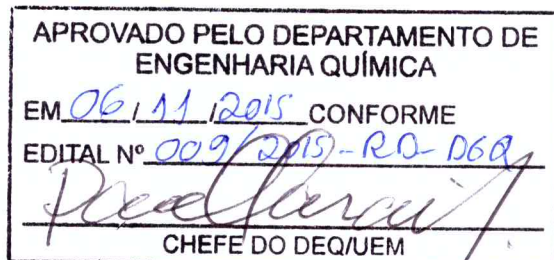 APROVADO PELO DEPARTAMENTO DE
ENGENHARIA QUÍMICA
EM 06/11/2015 CONFORME
EDITAL Nº 009/2015-RD-DEQ
CHEFE DO DEQ/UEM